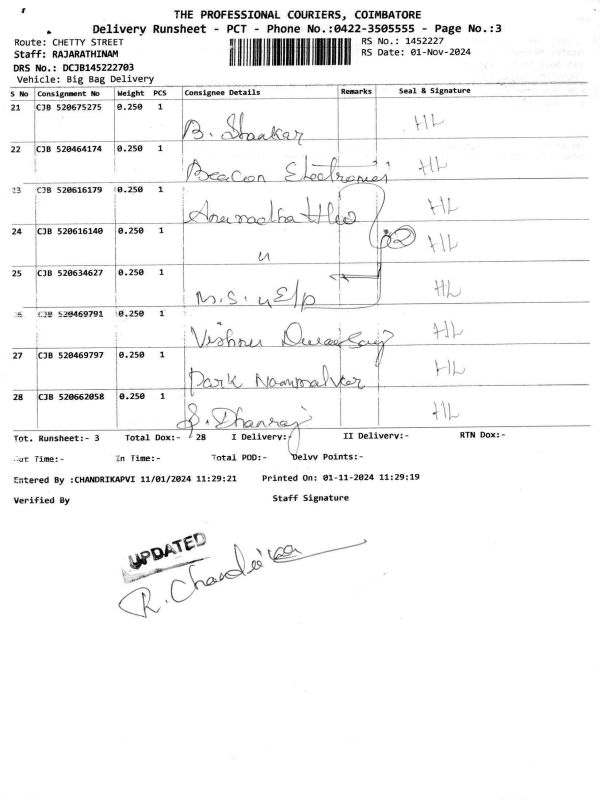 THE PROFESSIONAL COURIERS, COIMBATORE
Delivery Runsheet - PCT - Phone No.:0422-3505555 - Page No.:3
Route: CHETTY STREET RS No.: 1452227
Staff: RAJARATHINAM RS Date: 01-Nov-2024
DRS No.: DCJB145222703
Vehicle: Big Bag Delivery
S No Consignment No Weight PCS Consignee Details Remarks Seal & Signature
21 CJB 520675275 0.250 1 B. Shankar HL
22 CJB 520464174 0.250 1 Beacon Electronics HL
23 CJB 520616179 0.250 1 Anuradha HL
24 CJB 520616140 0.250 1 " HL
25 CJB 520634627 0.250 1 M.S. HL
26 CJB 520469791 0.250 1 Vishnu HL
27 CJB 520469797 0.250 1 Park HL
28 CJB 520662058 0.250 1 S. Dhanraj HL
Tot. Runsheet:- 3 Total Dox:- 28 I Delivery:- II Delivery:- RTN Dox:-
Out Time:- In Time:- Total POD:- Delvv Points:-
Entered By :CHANDRIKAPVI 11/01/2024 11:29:21 Printed On: 01-11-2024 11:29:19
Verified By Staff Signature
UPDATED
R. Chandrika